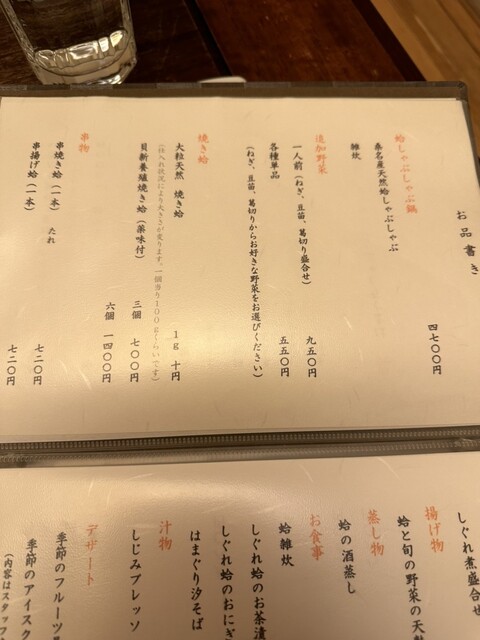 お品書き
蛤しゃぶしゃぶ鍋
桑名産天然蛤しゃぶしゃぶ 四七〇〇円
雑炊
追加野菜
一人前(ねぎ、豆苗、葛切り盛合せ) 九五〇円
各種単品 五五〇円
(ねぎ、豆苗、葛切りからお好きな野菜をお選びください)
焼き蛤
大粒天然 焼き蛤 1g 十円
(仕入れ状況により大きさが変ります。一個当り100gくらいです)
貝新養殖焼き蛤(薬味付) 三個 七〇〇円
六個 一四〇〇円
串物
串焼き蛤(一本) たれ 七二〇円
串揚げ蛤(一本) 七二〇円
しぐれ煮盛合せ
揚げ物
蛤と旬の野菜の天
蒸し物
蛤の酒蒸し
お食事
蛤雑炊
しぐれ蛤のお茶漬
しぐれ蛤のおにぎ
はまぐり汐そば
汁物
しじみブレッソ
デザート
季節のフルーツ
季節のアイスク
(内容はスタッフ